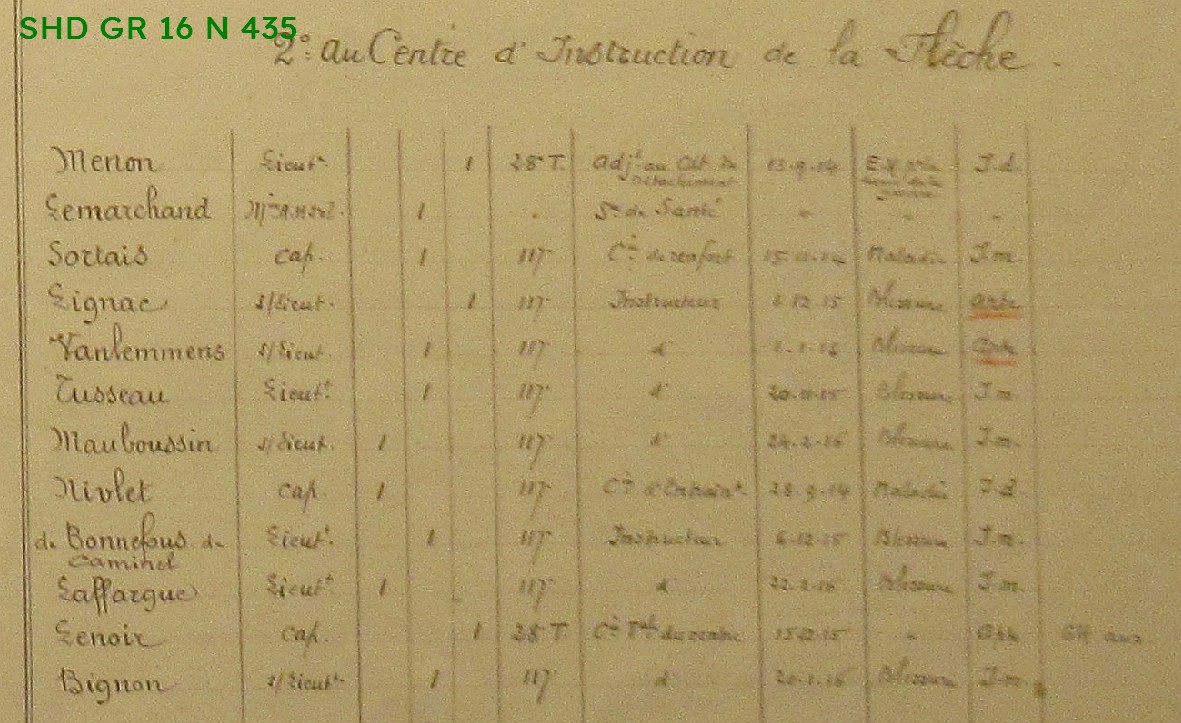 SHD GR 16 N 435
2° au Centre d'Instruction de la Flèche.
Menon Lieut. 1 28 T. Adjt au Cdt du Détachement 13.9.14 I.d.
Lemarchand 1 Sce de Santé
Sortais Cap. 1 117 Cie de renfort Maladie I.m.
Lignac s/Lieut. 1 117 Instructeur 8.12.15 Blessure apte
Vanlemmens s/Lieut. 1 117 d° 1.1.16 Blessure apte
Tusseau Lieut. 1 117 d° Blessure I.m.
Mauboussin s/Lieut. 1 117 d° 24.2.16 Blessure I.m.
Nivlet Cap. 1 117 Cie d'Entraint 28.9.14 Maladie I.d.
de Bonnefous de Caminel Lieut. 1 117 Instructeur 6.12.15 Blessure I.m.
Laffargue Lieut. 1 117 d° 22.2.16 Blessure I.m.
Lenoir Cap. 1 28 T Cie 15.12.15 "
Bignon s/Lieut. 1 117 d° 20.1.16 Blessure I.m.